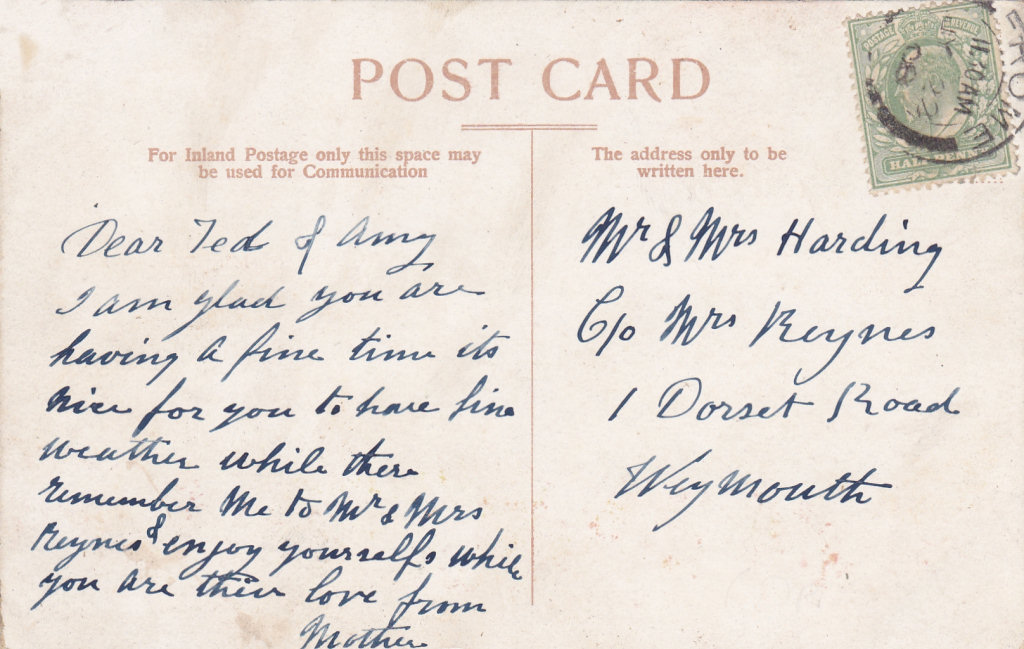 POST CARD
For Inland Postage only this space may
be used for Communication
The address only to be
written here.
POSTAGE REVENUE
HALFPENNY
FROME
11.70 AM
Dear Ted & Amy
I am glad you are
having a fine time its
nice for you to have fine
weather while there
remember Me to Mr & Mrs
Reynes & enjoy yourselfs while
you are their love from
Mother
Mr & Mrs Harding
C/o Mrs Reynes
1 Dorset Road
Weymouth